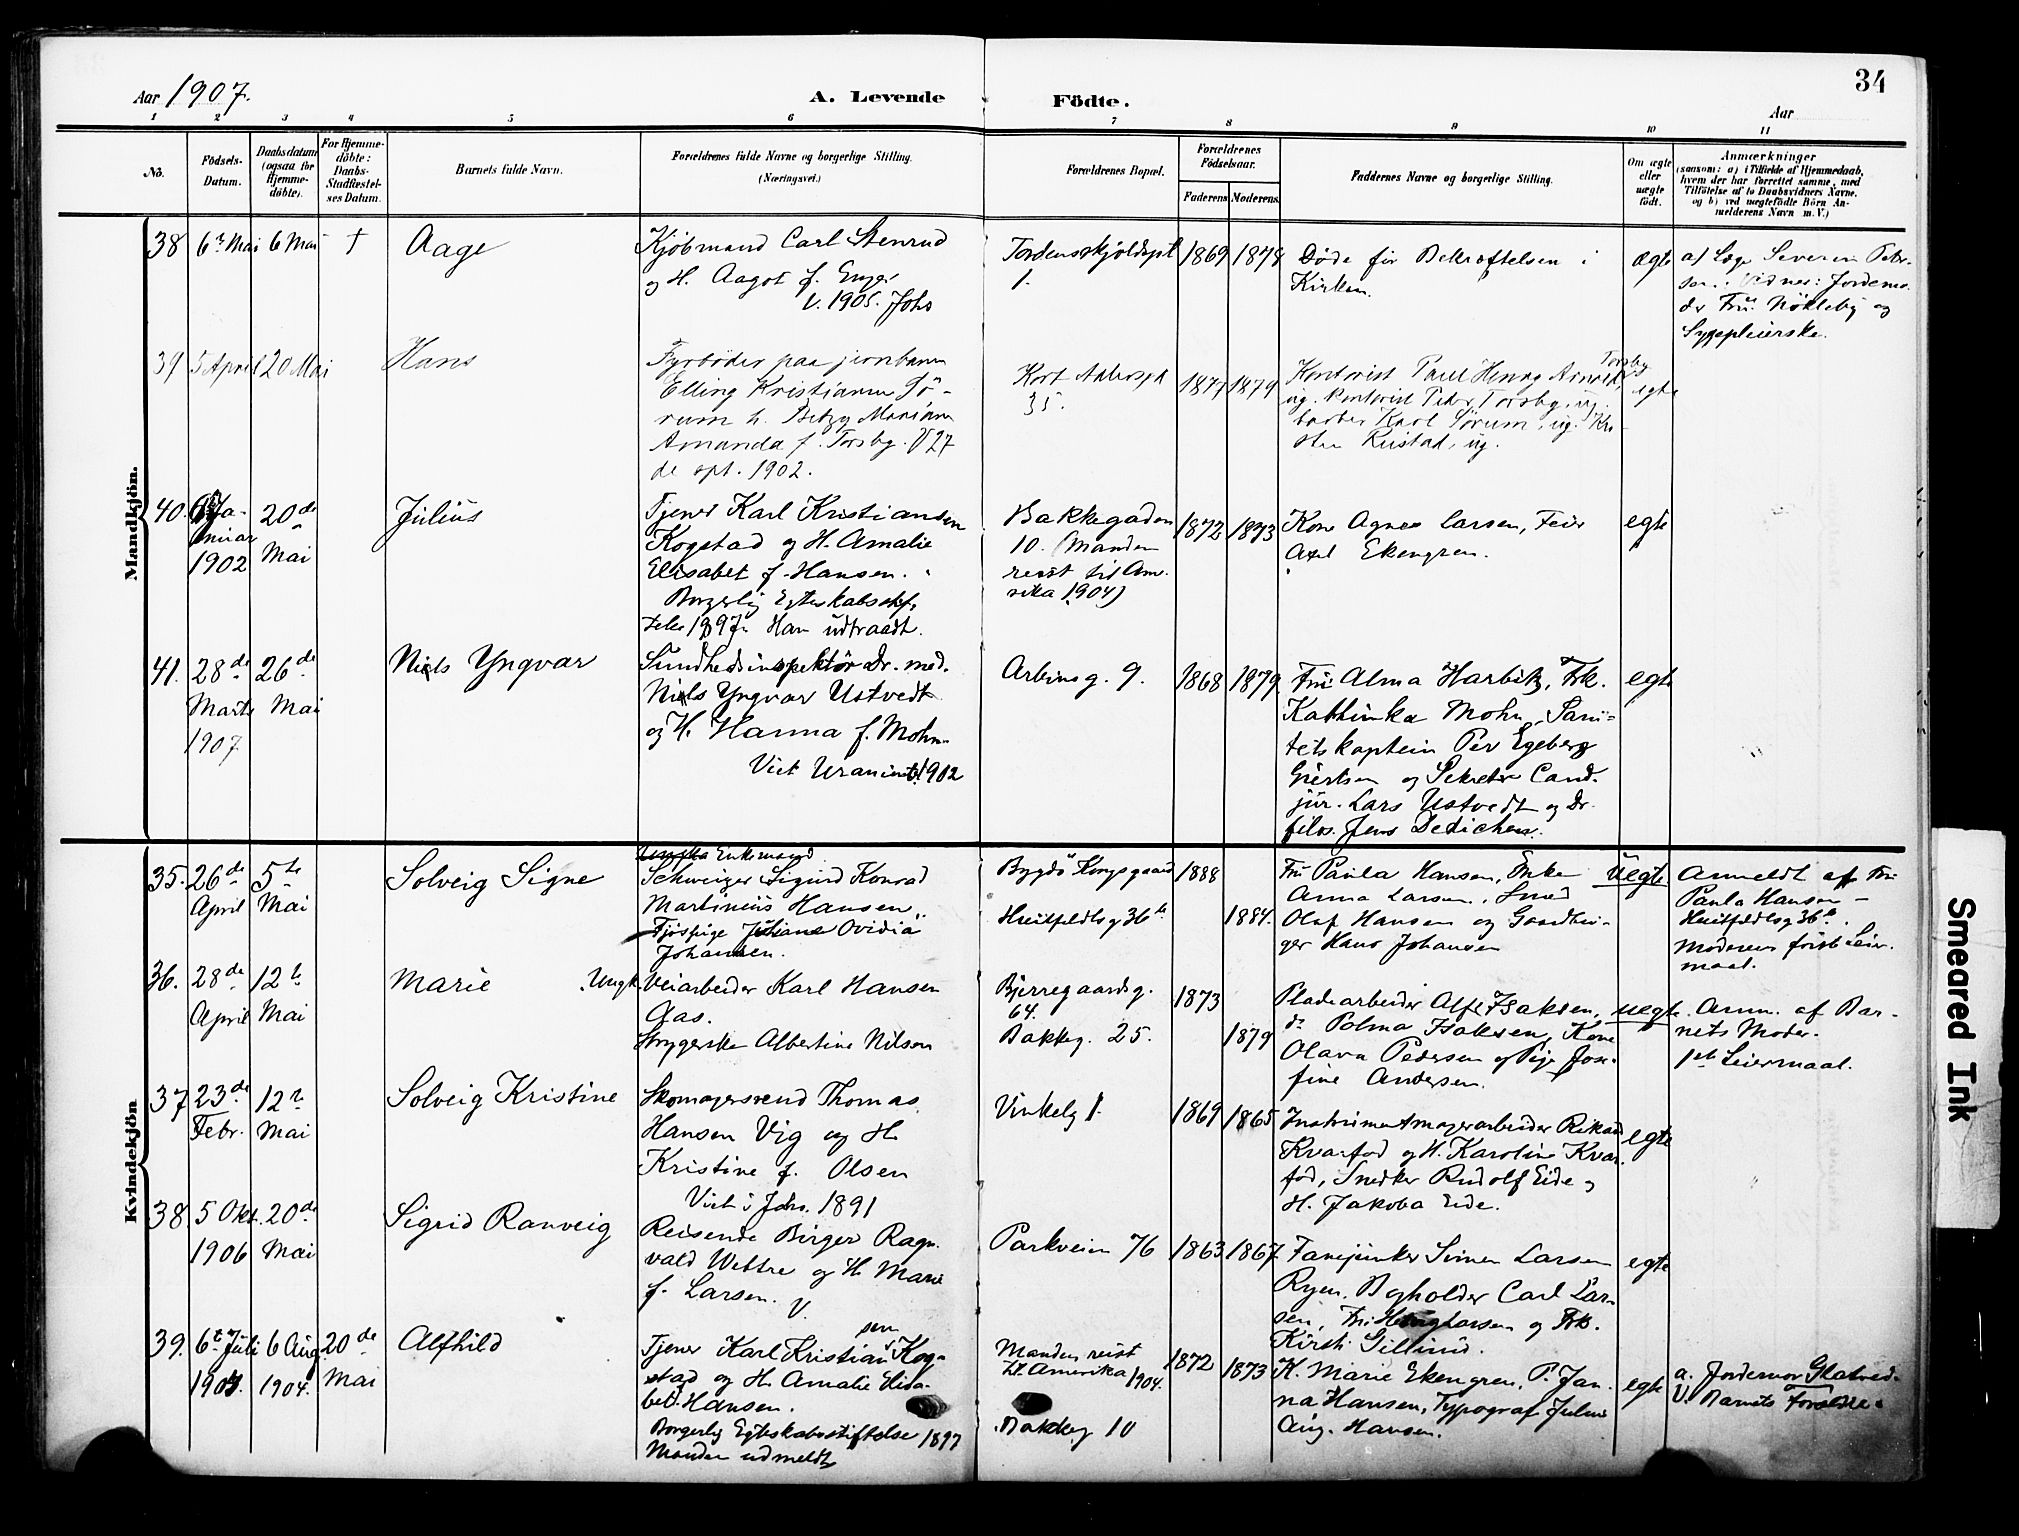 34
Aar 1907.
A. Levende Födte.
Aar
1 2 3 4 5 6 7 8 9 10 11
No.
Födsels-
Datum.
Daabsdatum
(ogsaa for
Hjemme-
döbte).
For Hjemme-
döbte:
Daabs-
Stadfæstel-
ses Datum.
Barnets fulde Navn.
Forældrenes fulde Navne og borgerlige Stilling.
(Næringsvei.)
Forældrenes Bopæl.
Forældrenes
Födselsaar.
Faderens Moderens
Faddernes Navne og borgerlige Stilling.
Om ægte
eller
uægte
födt.
Anmærkninger
(saasom: a) i Tilfælde af Hjemmedaab,
hvem der har forrettet samme, med
Tilföielse af to Daabsvidners Navne.
og b) ved uægtefödte Börn An-
melderens Navn m. V.)
Mandkjön.
38 6te Mai 6 Mai † Aage
Kjöbmand Carl Stenrud
og H. Aagot f. Enger
V. 1905. Johs
Tordenskjoldspl
1.
1869 1878
Döde för Bekræftelsen i
Kirken.
ægte
a/ Læge Severin Peter-
sen. Vidnes: Jordemo-
der Fru Nökleby og
Sygepleierske.
39 5 April 20 Mai Hans
Fyrböder paa jernbanen
Elling Kristianen Sö-
rum h. Betzy Mariane
Amanda f. Torsby. V 27
de spt. 1902.
Kort Adelersgt
35.
1877 1879
Kontorist Paul Henry Arnold Torsby
ug. Kontorist Peter Torsby, ug.
barber Karl Sörum, ug. Kri-
stn Rustad, ug.
egte
40. Ja-
nuar
1902
20de
Mai
Julius
Tjener Karl Kristiansen
Kogstad og H. Amalie
Elisabet f. Hansen.
Borgerlig Egteskabsstif-
telse 1897. Han udtraadt.
Bakkegaden
10. (Manden
reist til Ame-
rika 1904)
1872 1873
Kone Agnes Larsen, Feier
Axel Ekengren.
egte
41. 28de
Marts
1907
26de
Mai
Niels Yngvar
Sundhedsinspektör Dr. med.
Niels Yngvar Ustvedt
og H. Hanna f. Mohn.
Viet Uranienb. 1902
Arbinsg. 9.
1868 1879
Fru Alma Harbitz, Frk.
Kathinka Mohn, Sani-
tetskaptein Per Egeberg
Giertsen og Sekretær Cand.
jur. Lars Ustvedt og Dr.
filos. Jens Dedichen.
egte
Kvindekjön
35. 26de
April
5te
Mai
Solveig Signe
Ungka Enkemand
Schweizer Sigurd Konrad
Martinius Hansen
Tjöspige Juliane Ovidia
Johansen.
Bygdö Kongsgaard
Huitfeldtsg 36b
1888
1884.
Fru Paula Hansen, Enke
Anna Larsen, Smed
Olaf Hansen og Gaardbru-
ger Hans Johansen
Uegte
Anmeldt af Fru
Paula Hansen -
Huitfeldtsg 36b.
Moderens förste Leier-
maal.
36. 28de
April
12te
Mai
Marie
Ungk. Veiarbeider Karl Hansen
Aas.
Strygerske Albertine Nilsen
Bjerregaardsg.
64.
Bakkeg. 25.
1873
1879
Pladearbeider Alf Isaksen,
do Palma Isaksen, Kone
Olava Pedersen og Pige Jose-
fine Andersen.
uegte
Anm. af Bar-
nets Moder.
1ste Leiermaal.
37 23de
Febr.
12te
Mai
Solveig Kristine
Skomagersvend Thomas
Hansen Vig og H.
Kristine f. Olsen
Viet i Johs. 1891
Vinkelg 1.
1869 1865
Instrumentmagerarbeider Rikard
Kvarfod og H. Karoline Kvar-
fod, Snedker Rudolf Eide og
H. Jakoba Eide.
egte
38 5 Okt.
1906
20de
Mai
Sigrid Ranveig
Reisende Birger Ragn-
vald Wettre og H. Marie
f. Larsen. V.
Parkveien 76
1863 1867
Fanejunker Simen Larsen
Ryen, Bogholder Carl Lar-
sen, Fru Larsen og Frk.
Kirsti Gillund.
egte
39. 6te Juli
1904
6 Aug
1904.
20de
Mai
Alfhild
Tjener Karl Kristiansen Kog-
stad og H. Amalie Elisa-
bet Hansen.
Borgerlig Egteskabsstiftelse 1897
Manden udmeldt
Manden reist
til Amerika 1904.
Bakkeg 10
1872 1873
H. Marie Ekengren, P. Jan-
na Hansen, Typograf Julius
Aug. Hansen.
egte
a. Jordemor Glatved.
V. Barnets forældre.
Smeared Ink